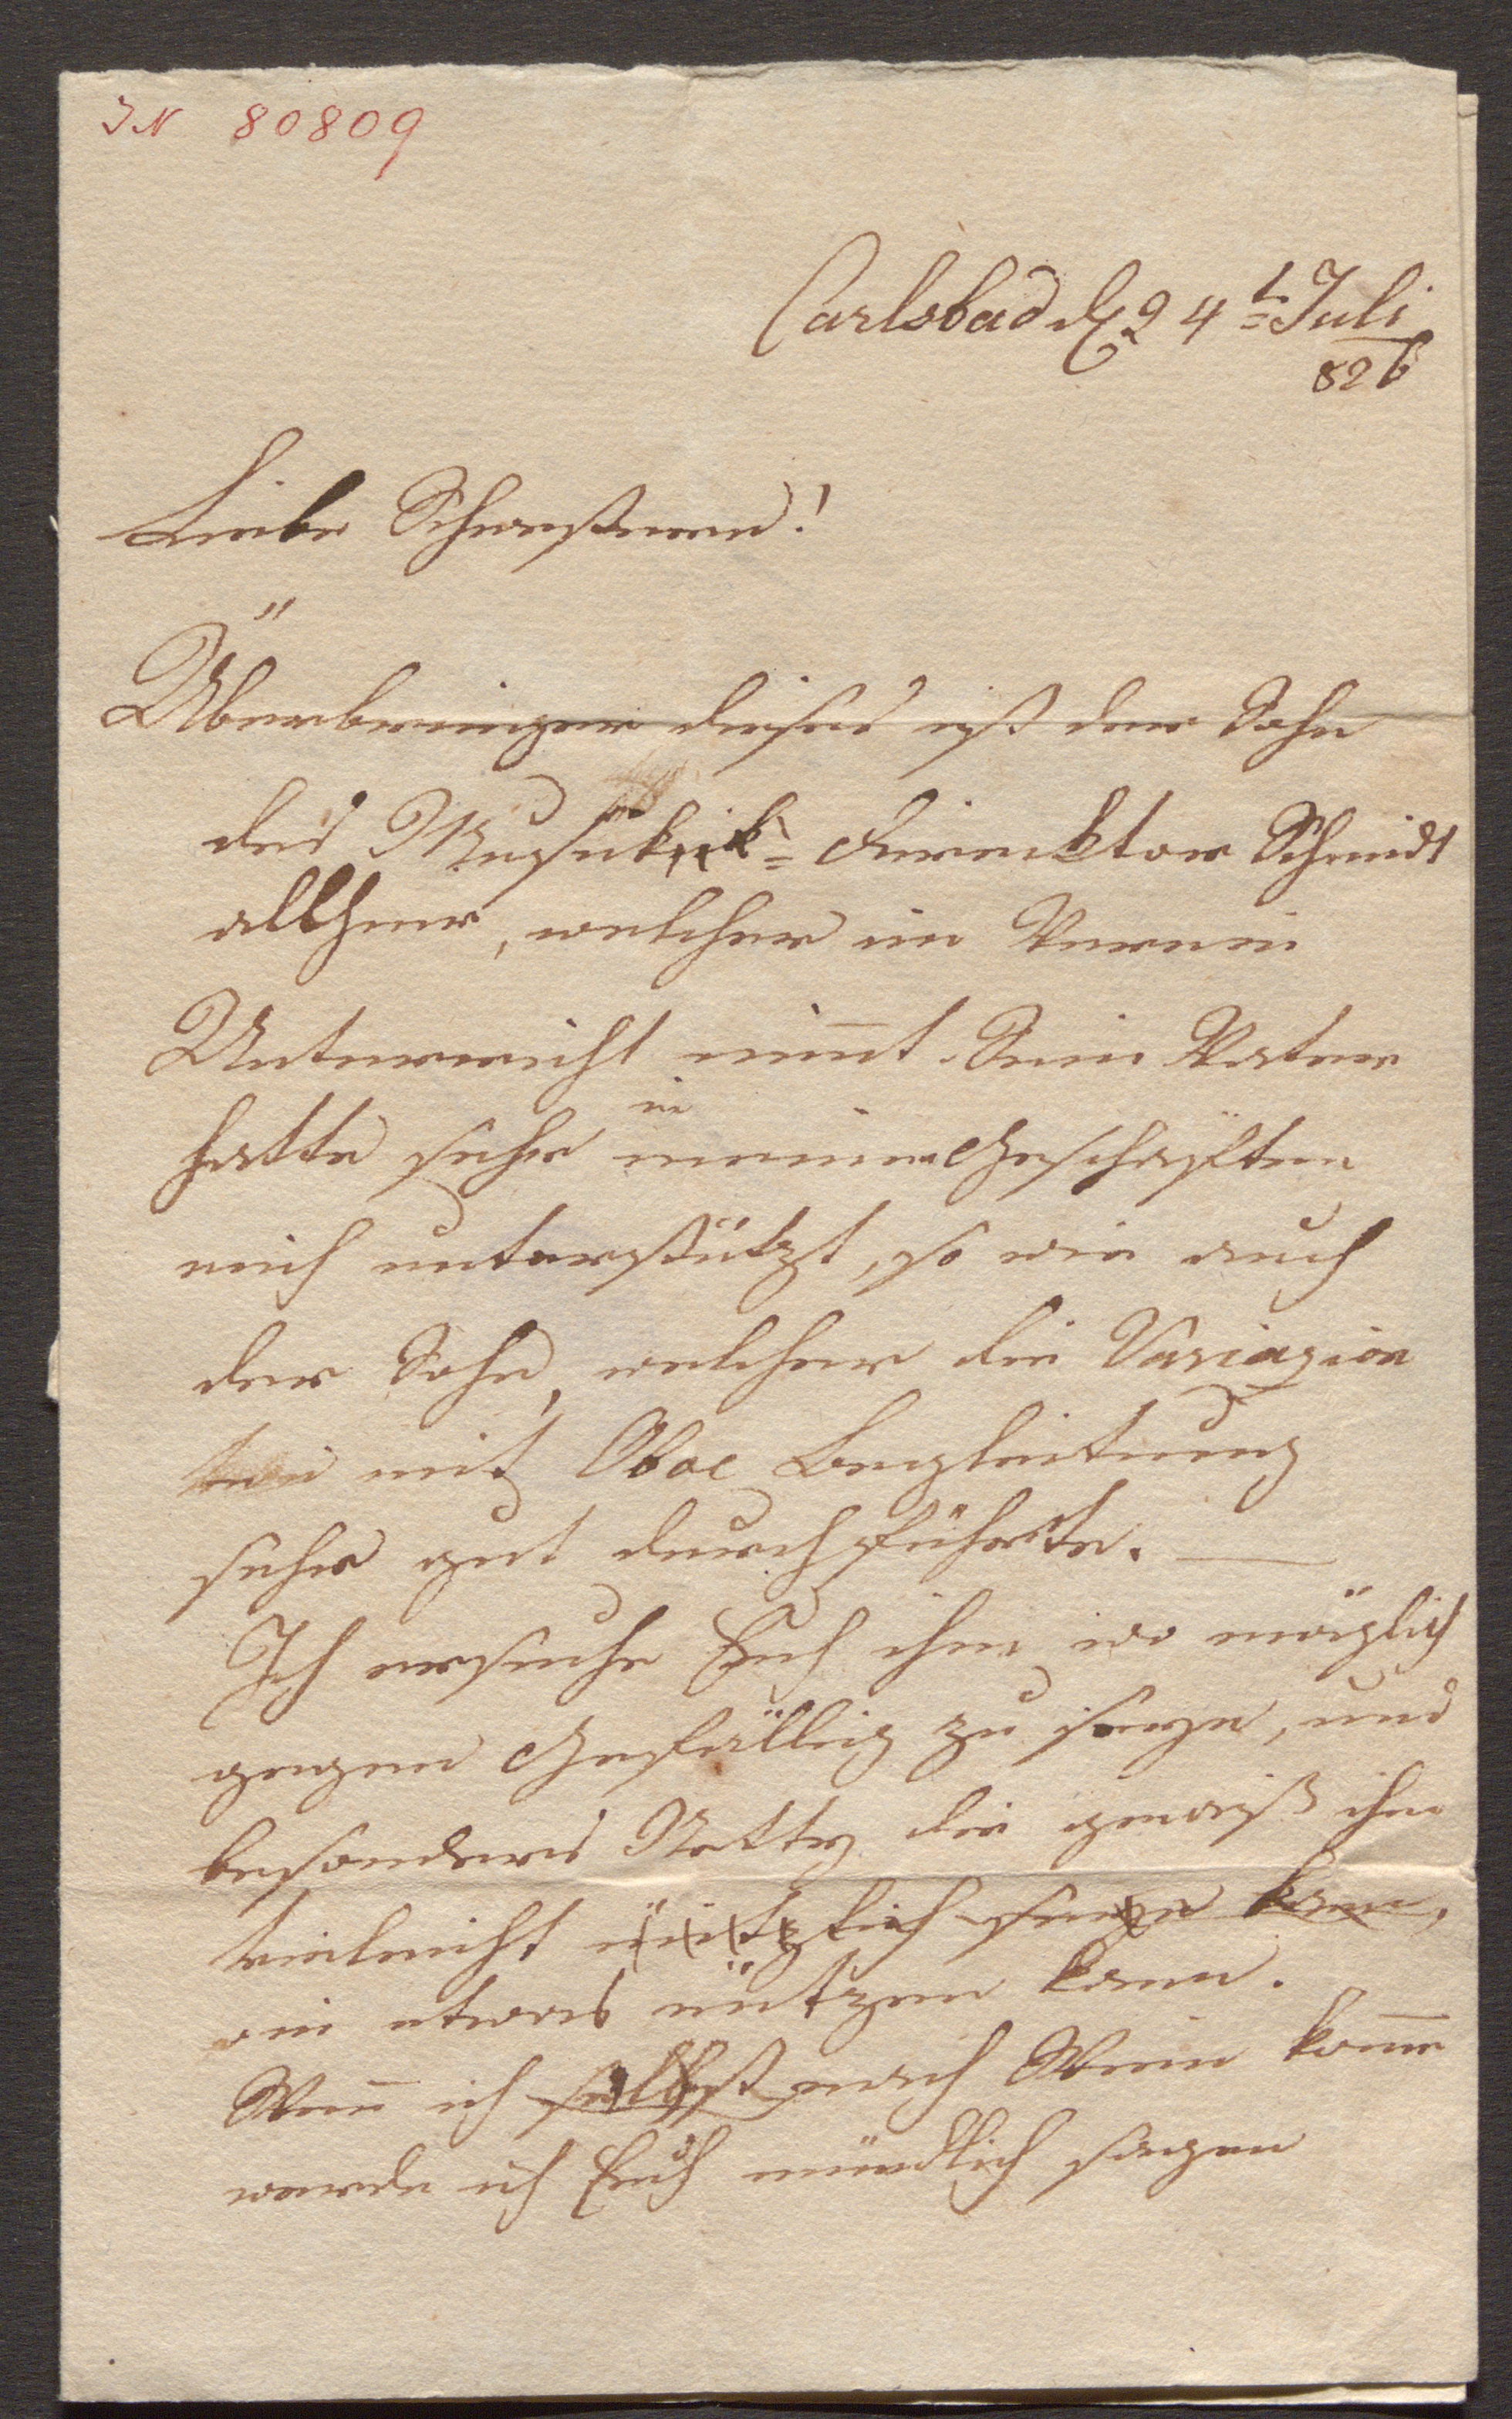 IN 80809
Carlsbad d 24t Juli
826
Liebe Schwestern!
Überbringer dieses ist der Sohn
des Musik- Direktor Schmidt
allhier, welcher in Verein
Unterricht nim̄t. Sein Vater
hatte sehr in meinen Geschäften
mich unterstützt, so wie auch
der Sohn, welcher die Variazion
mit Oboe Begleitung
sehr gut durchführte. —
Ich ersuche Euch ihm wo möglich
gegen Gefällig zu seyn, und
besonders Netty die gewiß ihm
vieleicht nützlich seyn kann,
in etwas nützen kann.
Wen̄ ich selbst nach Wien kom̄e
werde ich Euch mündlich sagen